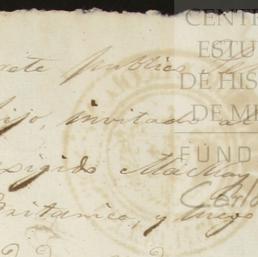 CENTR
ESTU
DE HIS
DE ME
FUND
Carlo
publico
hijo, invitado a
exigido MacKay
Britanico, y luego